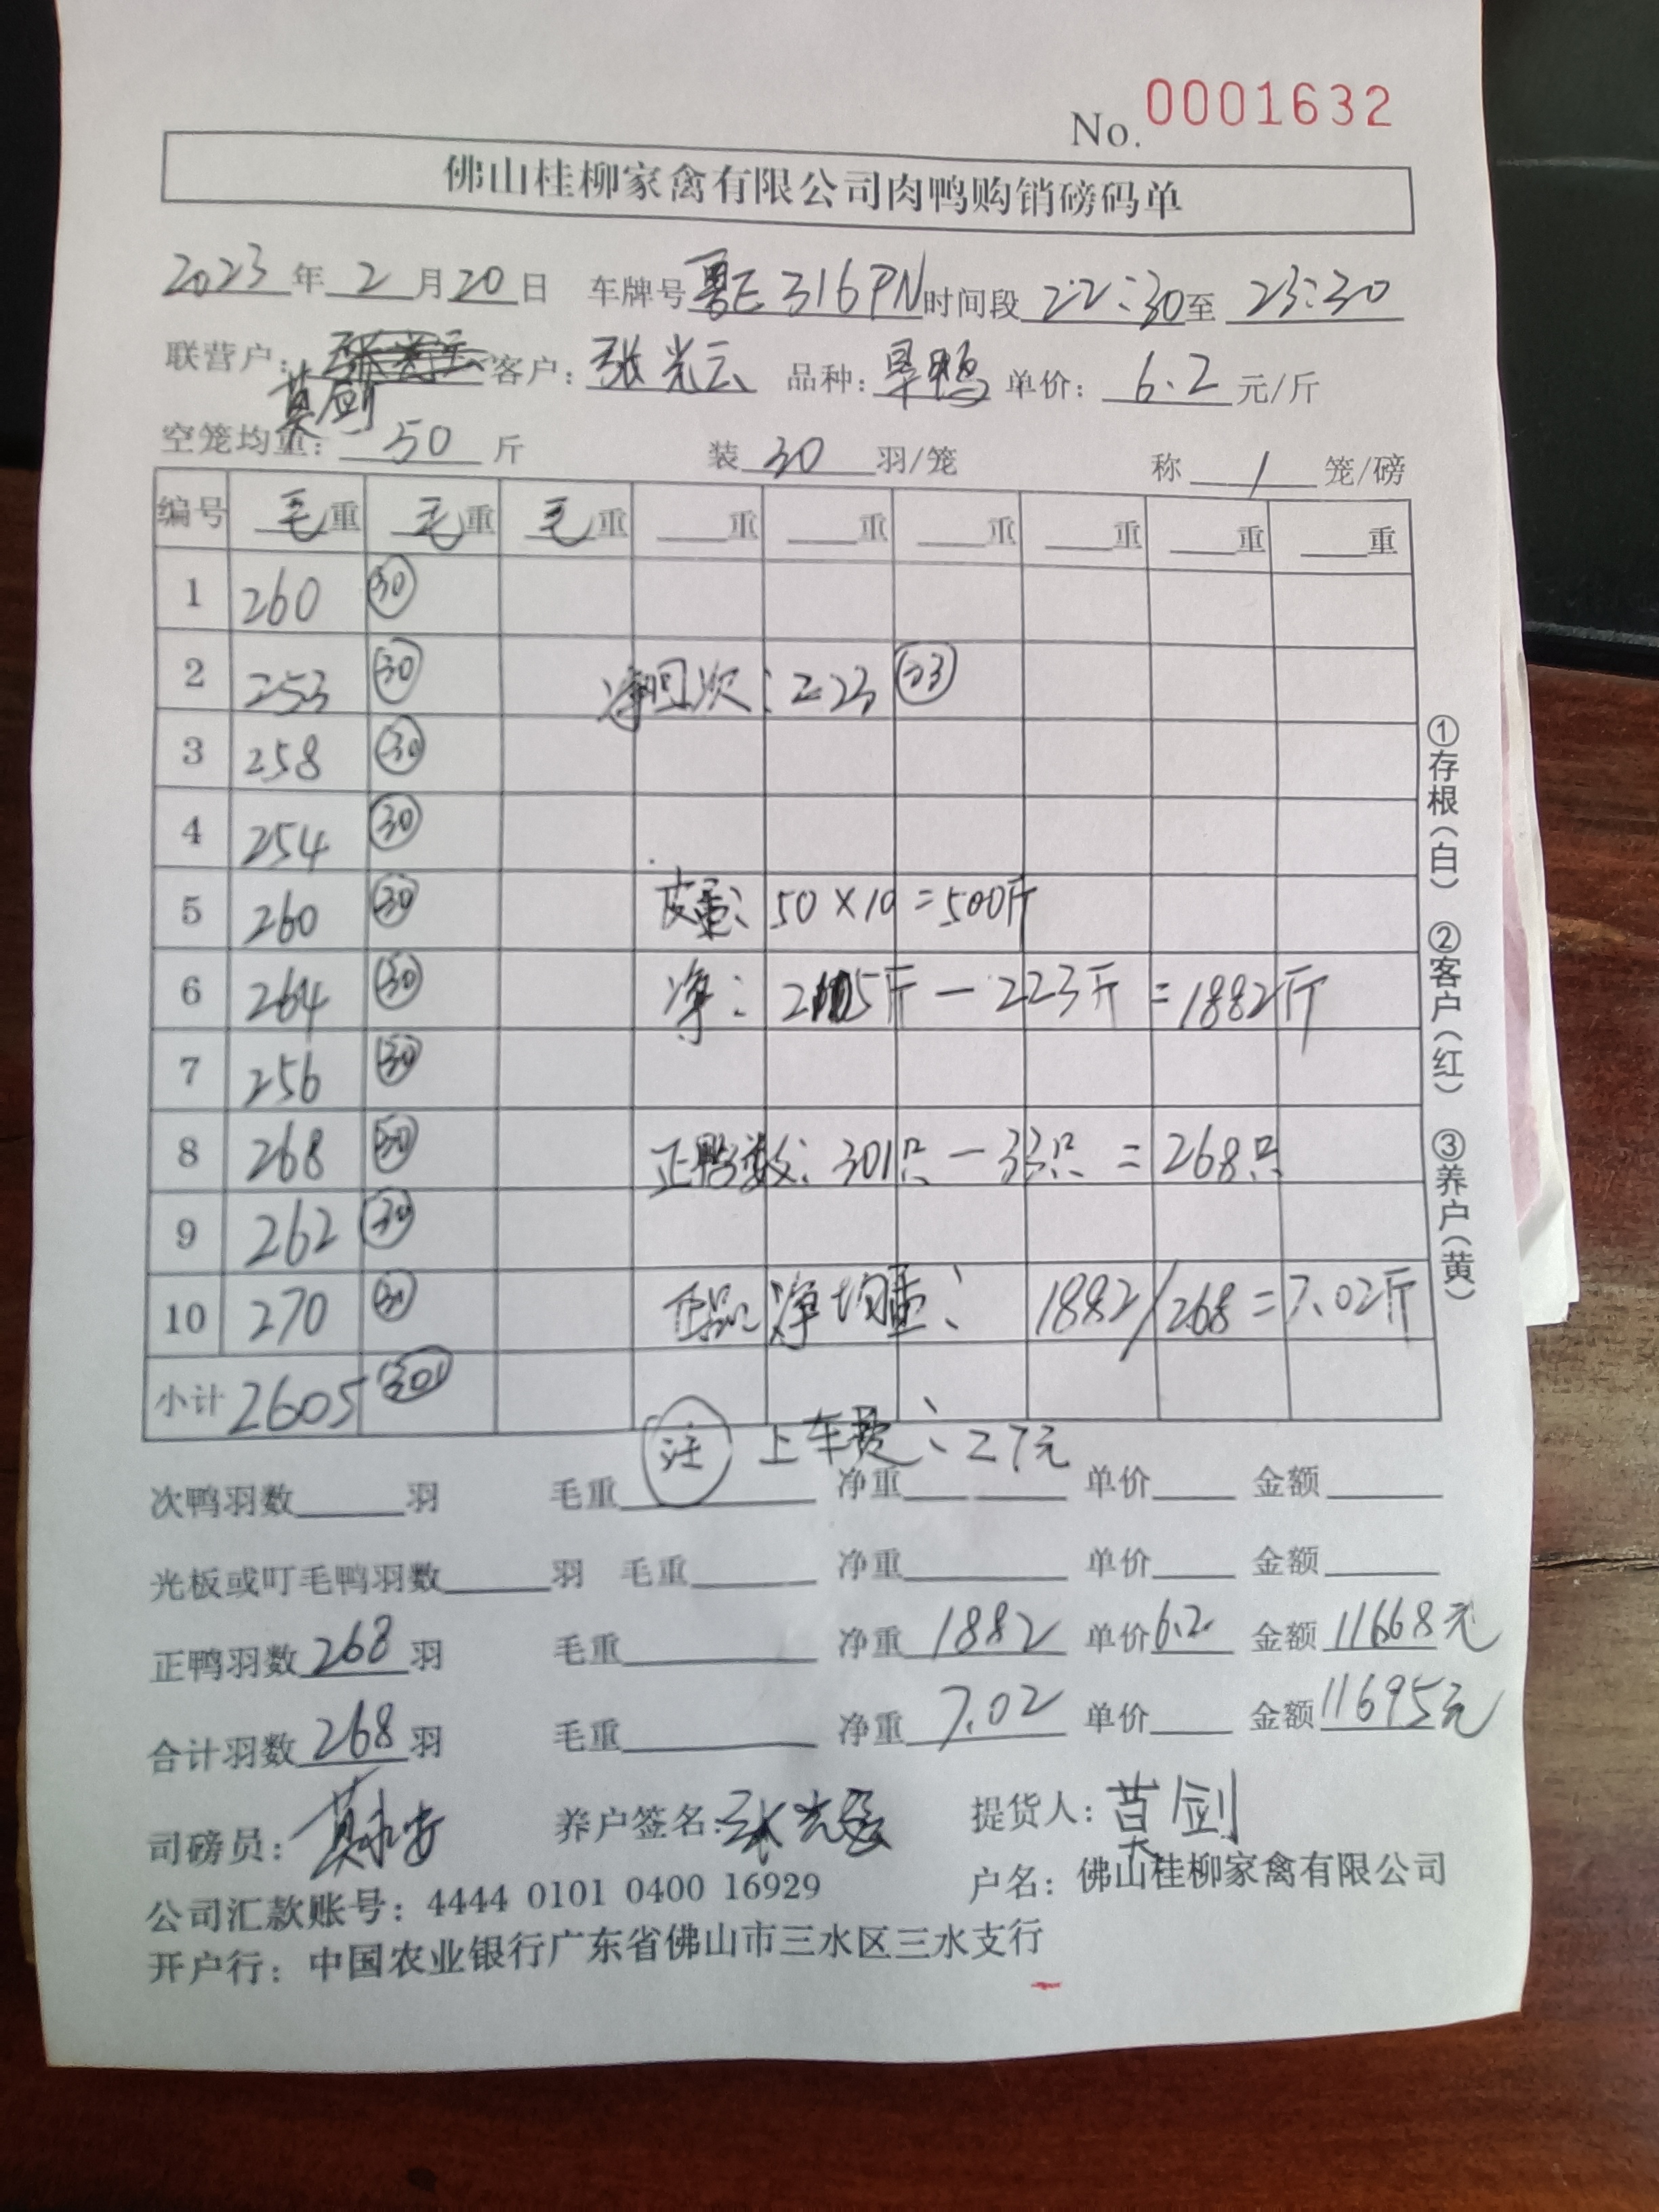 No. 0001632
佛山桂柳家禽有限公司肉鸭购销磅码单
2023年2月20日 车牌号粤E316PN时间段22:30至23:30
联营户: 客户:张光云 品种:旱鸭 单价:6.2元/斤
莫剑
空笼均重:50斤 装30羽/笼 称1笼/磅
编号 毛重 毛重 毛重 重 重 重 重 重 重
1 260 30
2 253 30 净回次:223 33
3 258 30
4 254 30
5 260 30 皮重:50×10=500斤
6 264 30 净:2105斤-223斤=1882斤
7 256 30
8 268 30 正鸭数:301只-33只=268只
9 262 30
10 270 31 正品净均重:1882/268=7.02斤
小计 2605 301
注 上车费:27元
次鸭羽数 羽 毛重 净重 单价 金额
光板或叮毛鸭羽数 羽 毛重 净重 单价 金额
正鸭羽数268羽 毛重 净重1882 单价6.2 金额11668元
合计羽数268羽 毛重 净重7.02 单价 金额11695元
司磅员:莫永安 养户签名:张光云 提货人:莫剑
公司汇款账号:4444 0101 0400 16929 户名:佛山桂柳家禽有限公司
开户行:中国农业银行广东省佛山市三水区三水支行
①存根(白) ②客户(红) ③养户(黄)